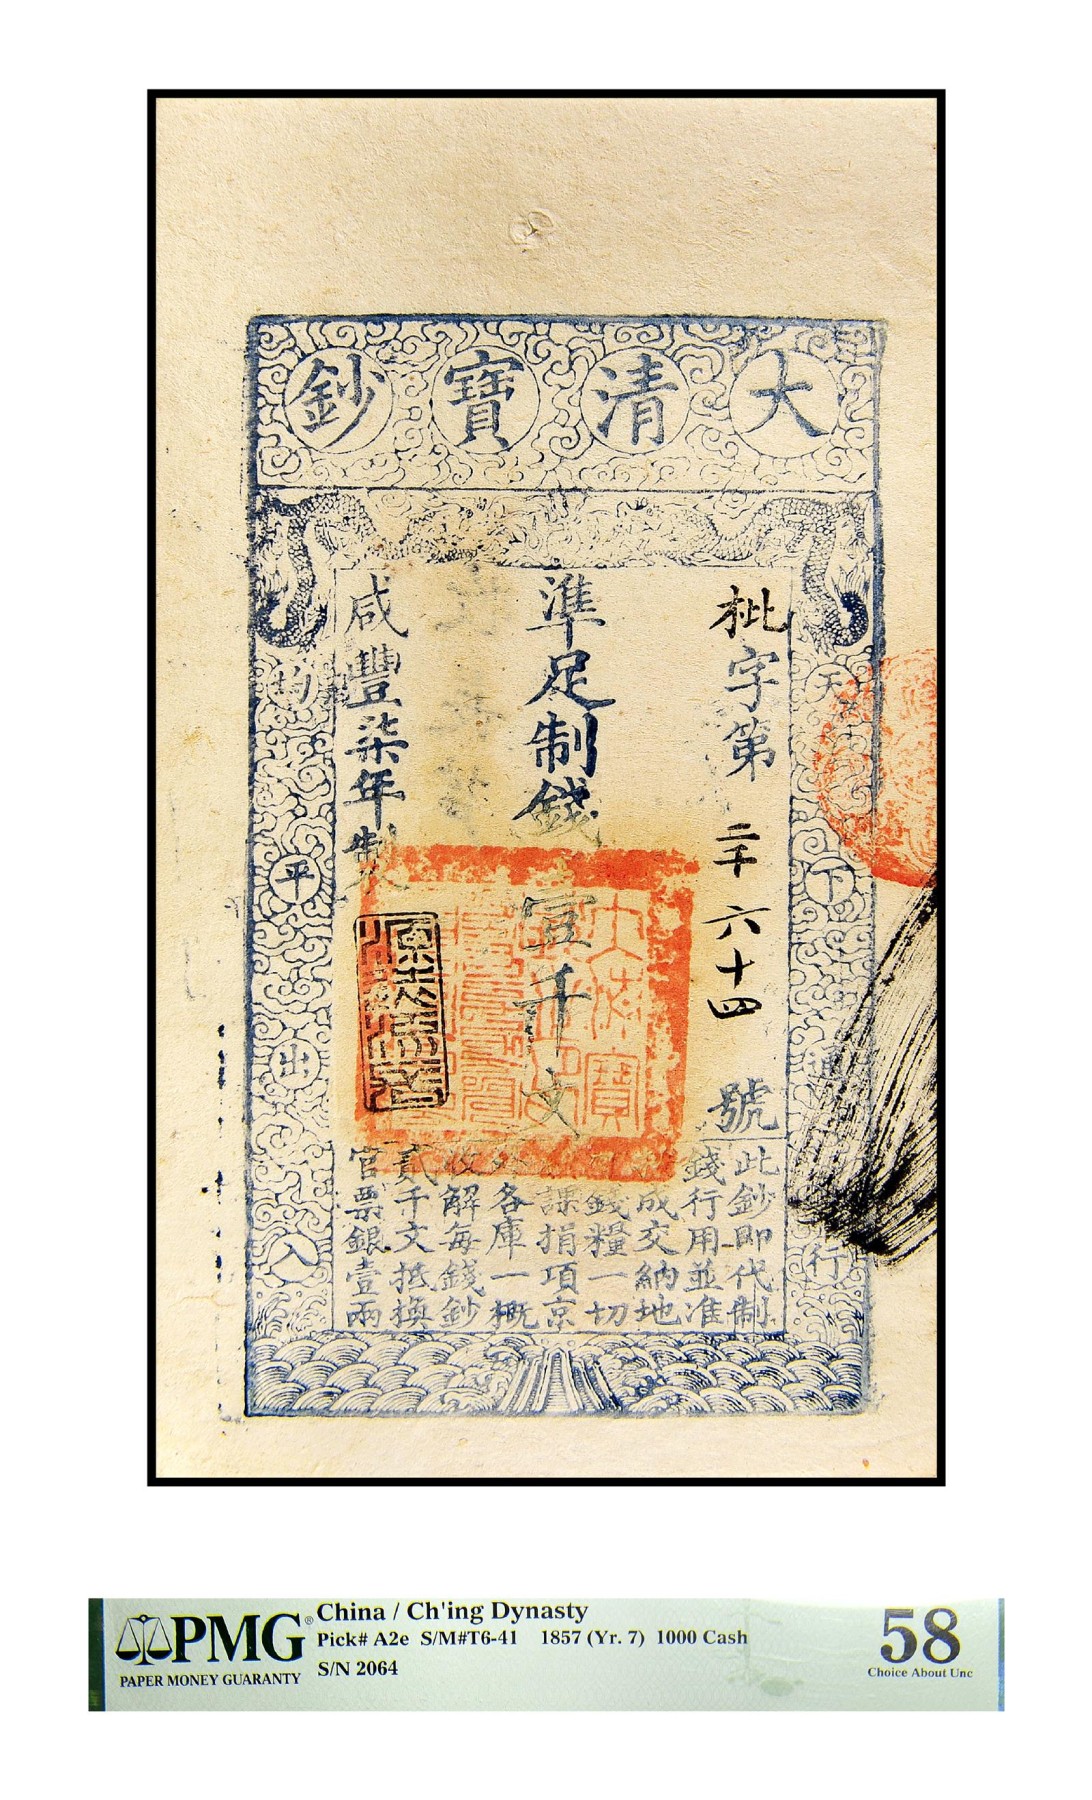 大清寶鈔
天下通行
均平出入
枇字第二千六十四號
準足制錢壹千文
咸豐柒年製
此鈔即代制
錢行用並准
成交納地
錢糧一切
課捐項京
外各庫一概
收解每錢鈔
貳千文抵換
官票銀壹兩
PMG®
PAPER MONEY GUARANTY
China / Ch'ing Dynasty
Pick# A2e S/M#T6-41 1857 (Yr. 7) 1000 Cash
S/N 2064
58
Choice About Unc